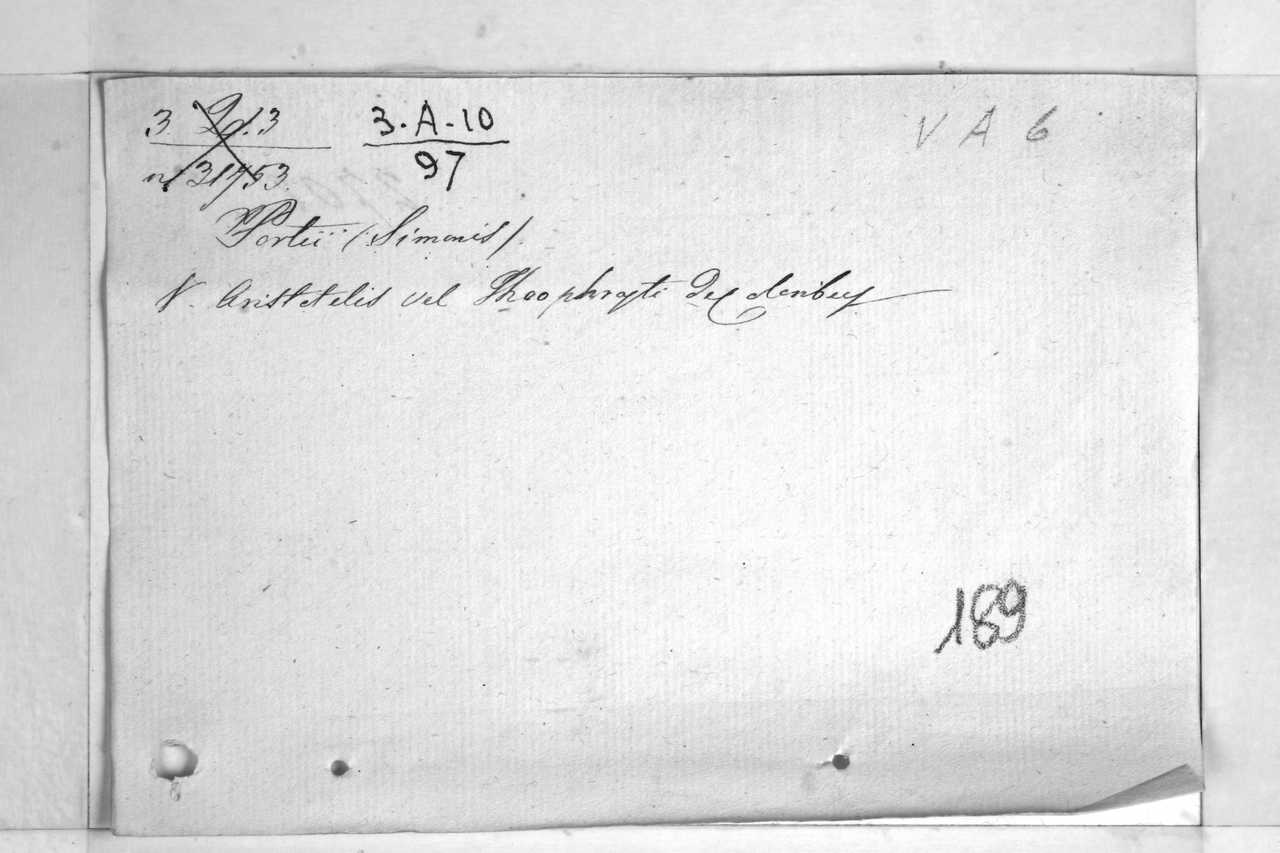 3. 2d. 3
3-A-10
V A 6
n. 31753.
97
Portii (Simonis).
V. Aristotelis vel Theophrasti De
189